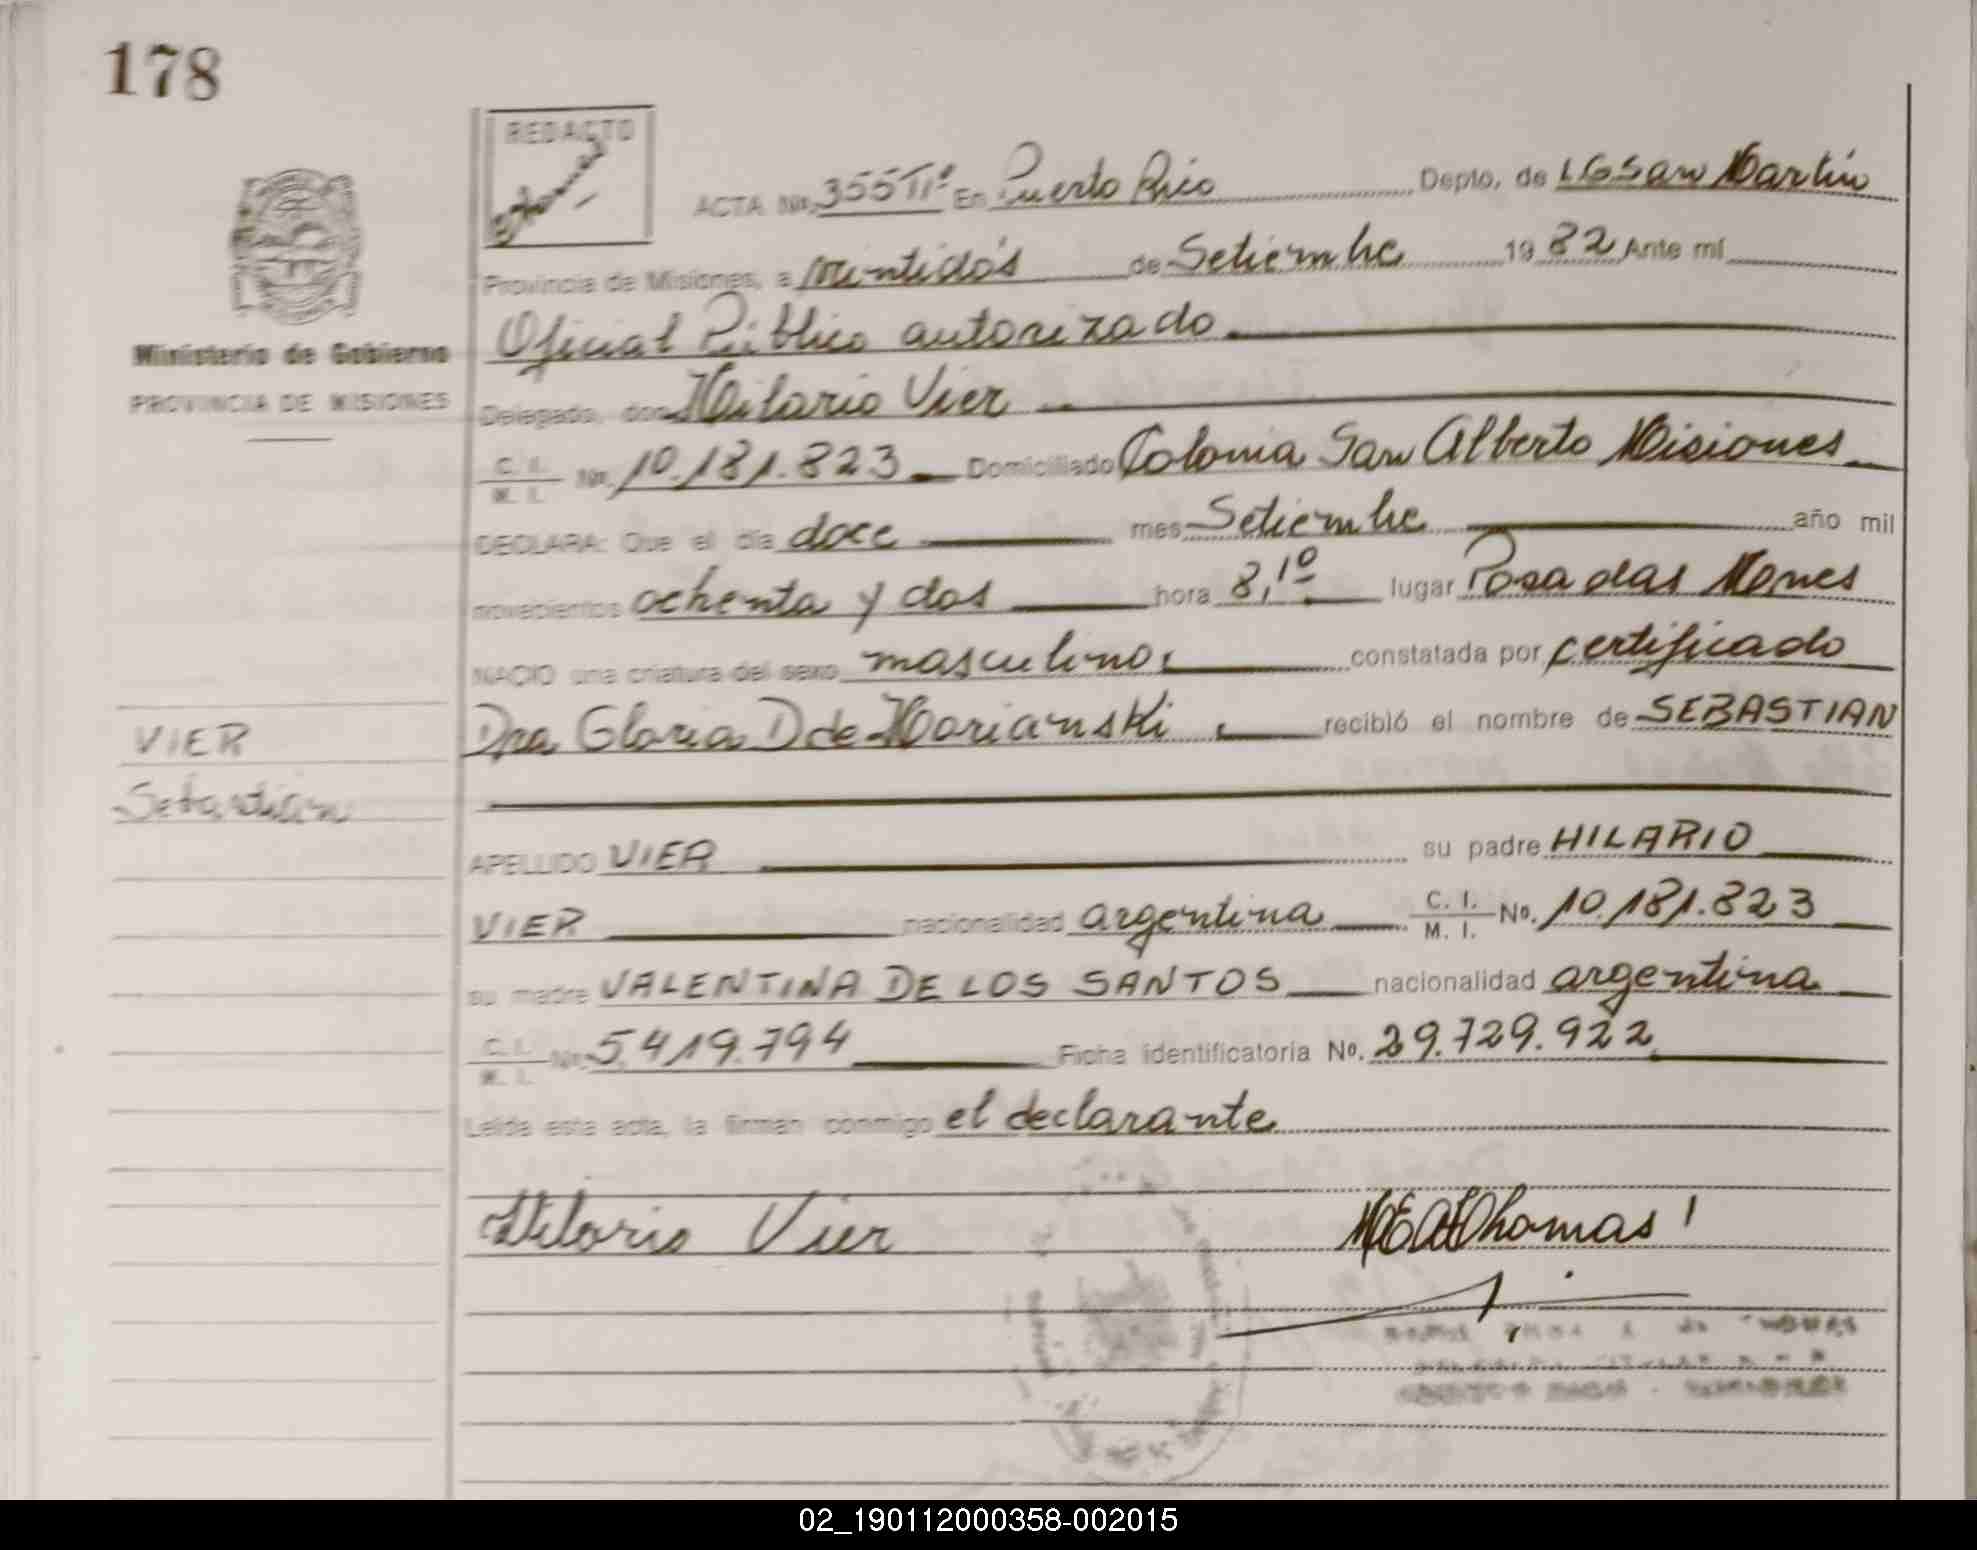 178
REDACTO
ACTA No. 355 Tº En Puerto Rico Depto. de LGSan Martín
Provincia de Misiones, a veintidós de Setiembre 1982 Ante mí
Oficial Público autorizado
Ministerio de Gobierno
PROVINCIA DE MISIONES
Delegado, don Hilario Vier
C. I. M. I. No. 10.181.823 Domiciliado Colonia San Alberto Misiones
DECLARA: Que el día doce mes Setiembre año mil
novecientos ochenta y dos hora 8,10 lugar Posadas Mones
NACIO una criatura del sexo masculino, constatada por certificado
Dra Gloria D de Marianski recibió el nombre de SEBASTIAN
VIER
Sebastian
APELLIDO VIER su padre HILARIO
VIER nacionalidad argentina C. I. M. I. No. 10.181.823
su madre VALENTINA DE LOS SANTOS nacionalidad argentina
C. I. M. I. No. 5.419.794 Ficha identificatoria No. 29.729.922
Leída esta acta, la firman conmigo el declarante
Hilario Vier Thomas
02_190112000358-002015